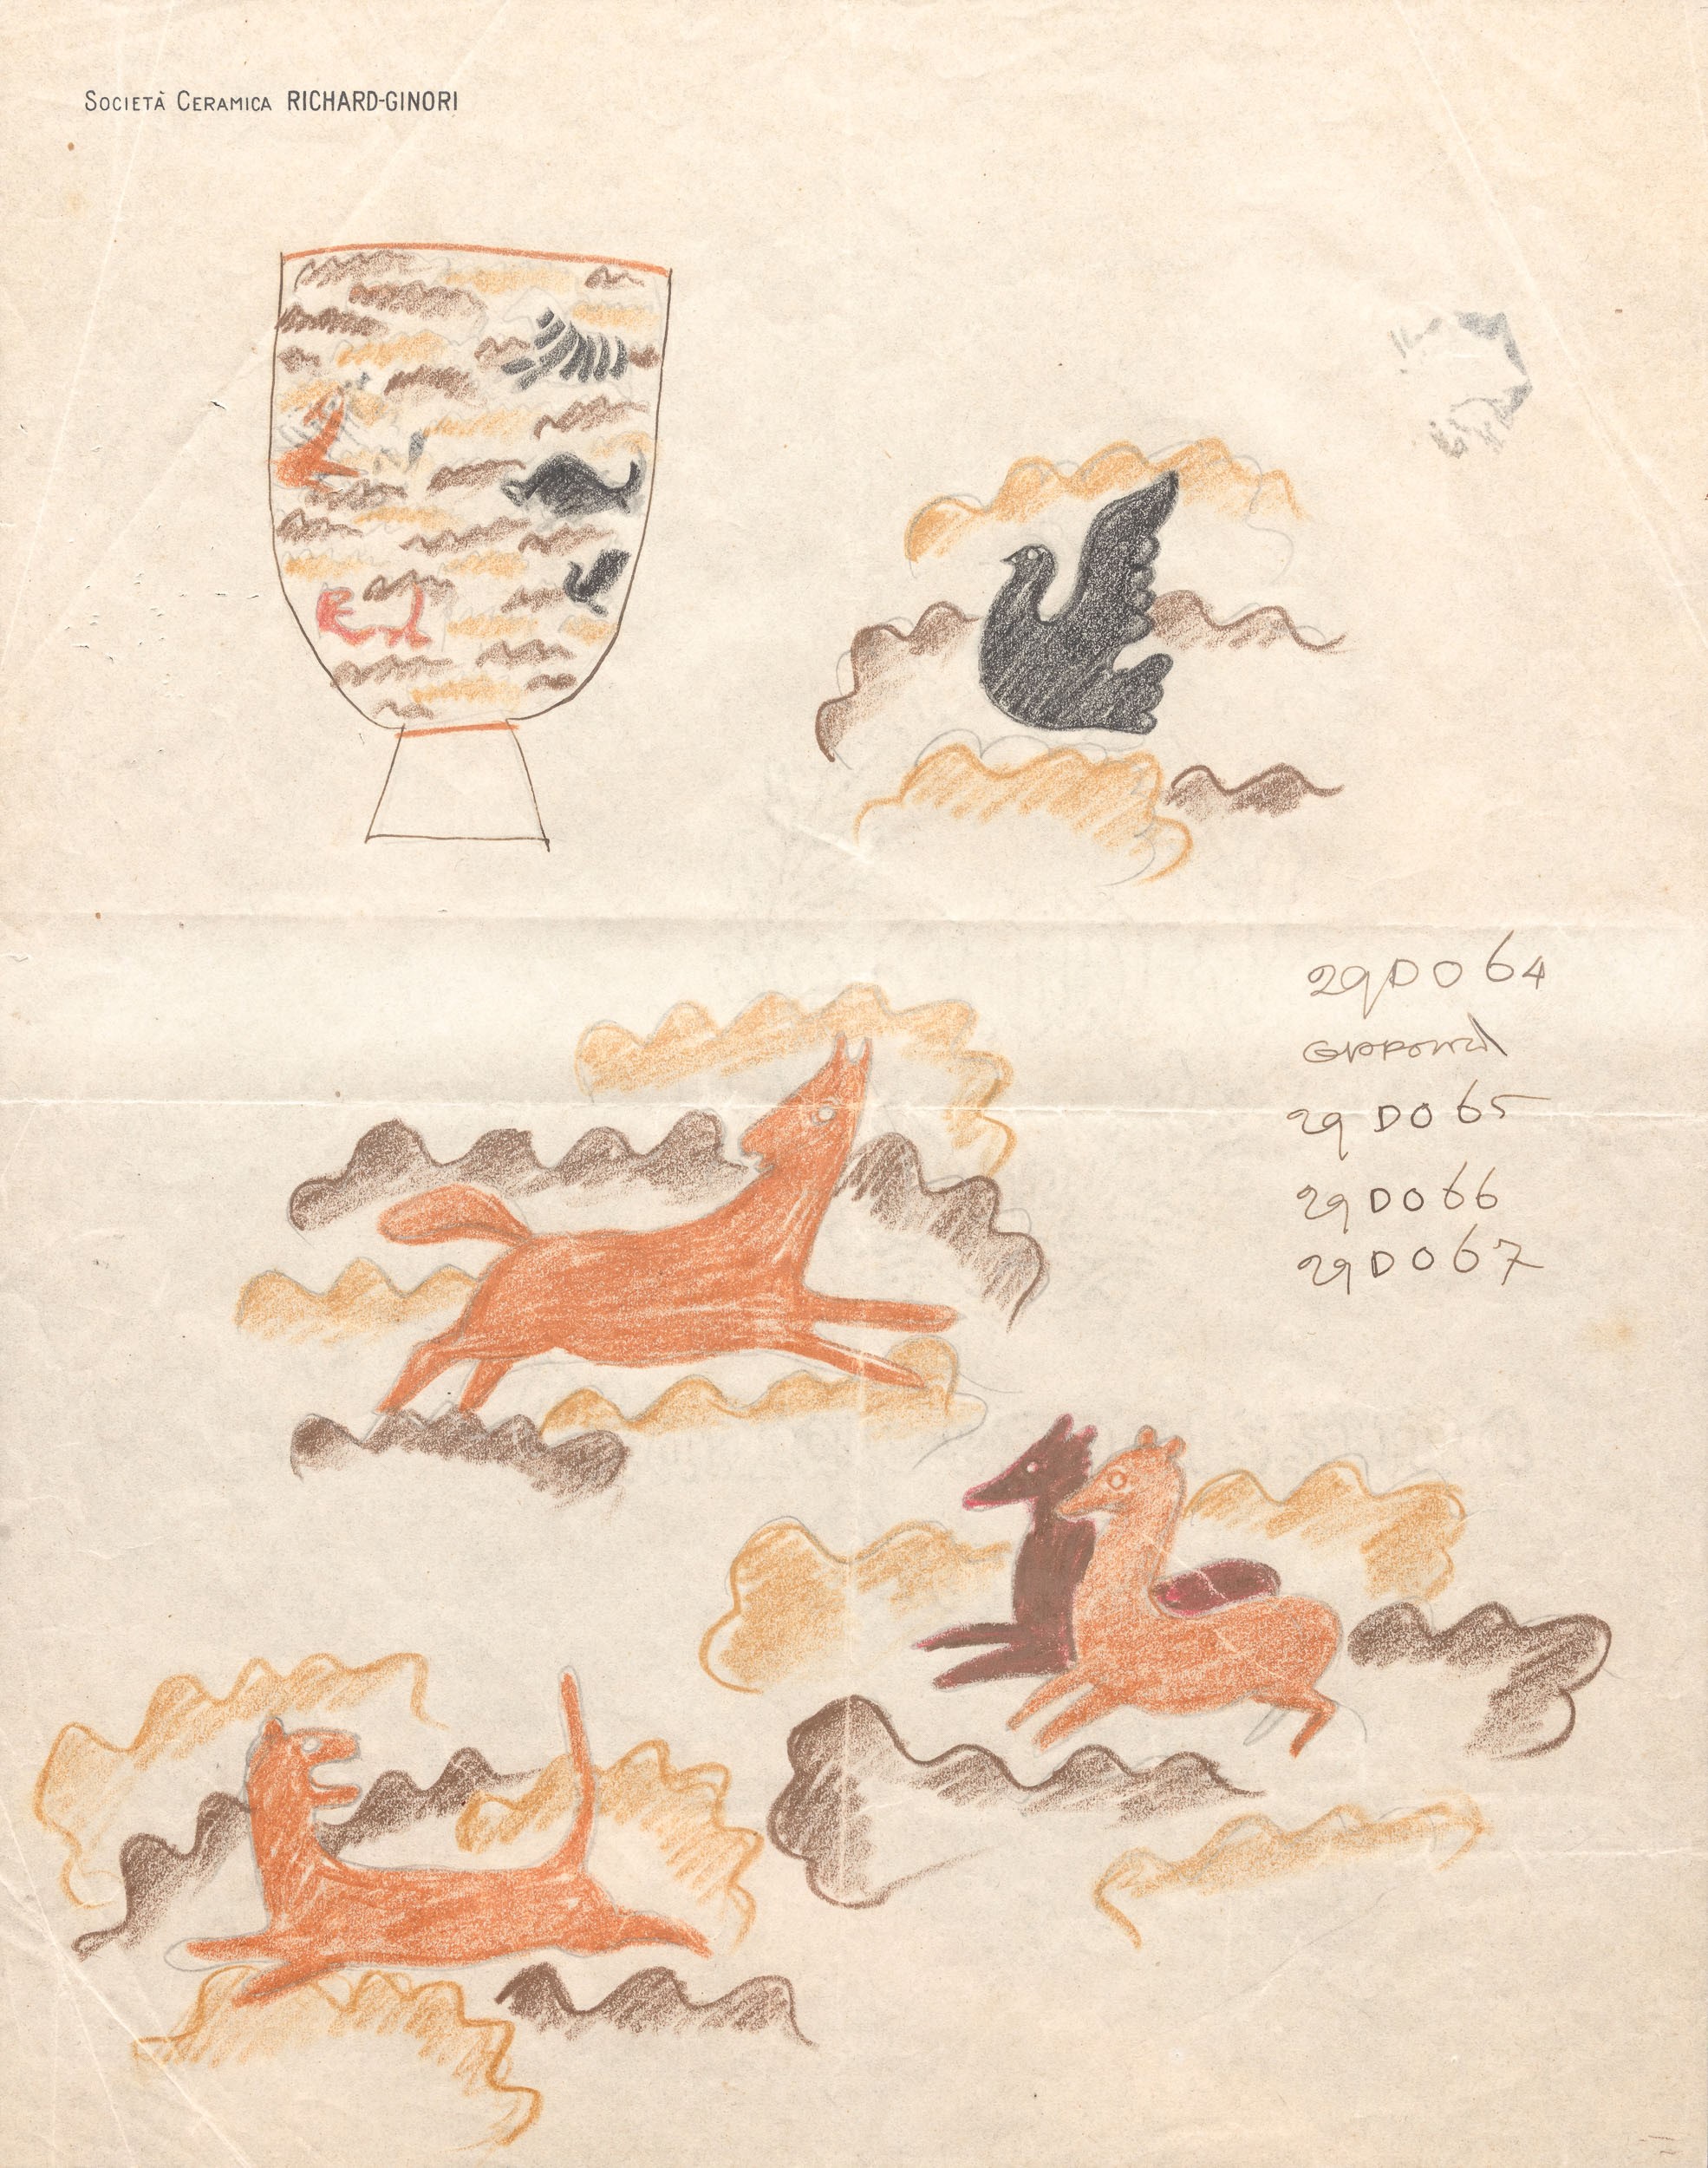 Società Ceramica RICHARD-GINORI
29DO64
29 DO 65
29 DO 66
29 DO 67